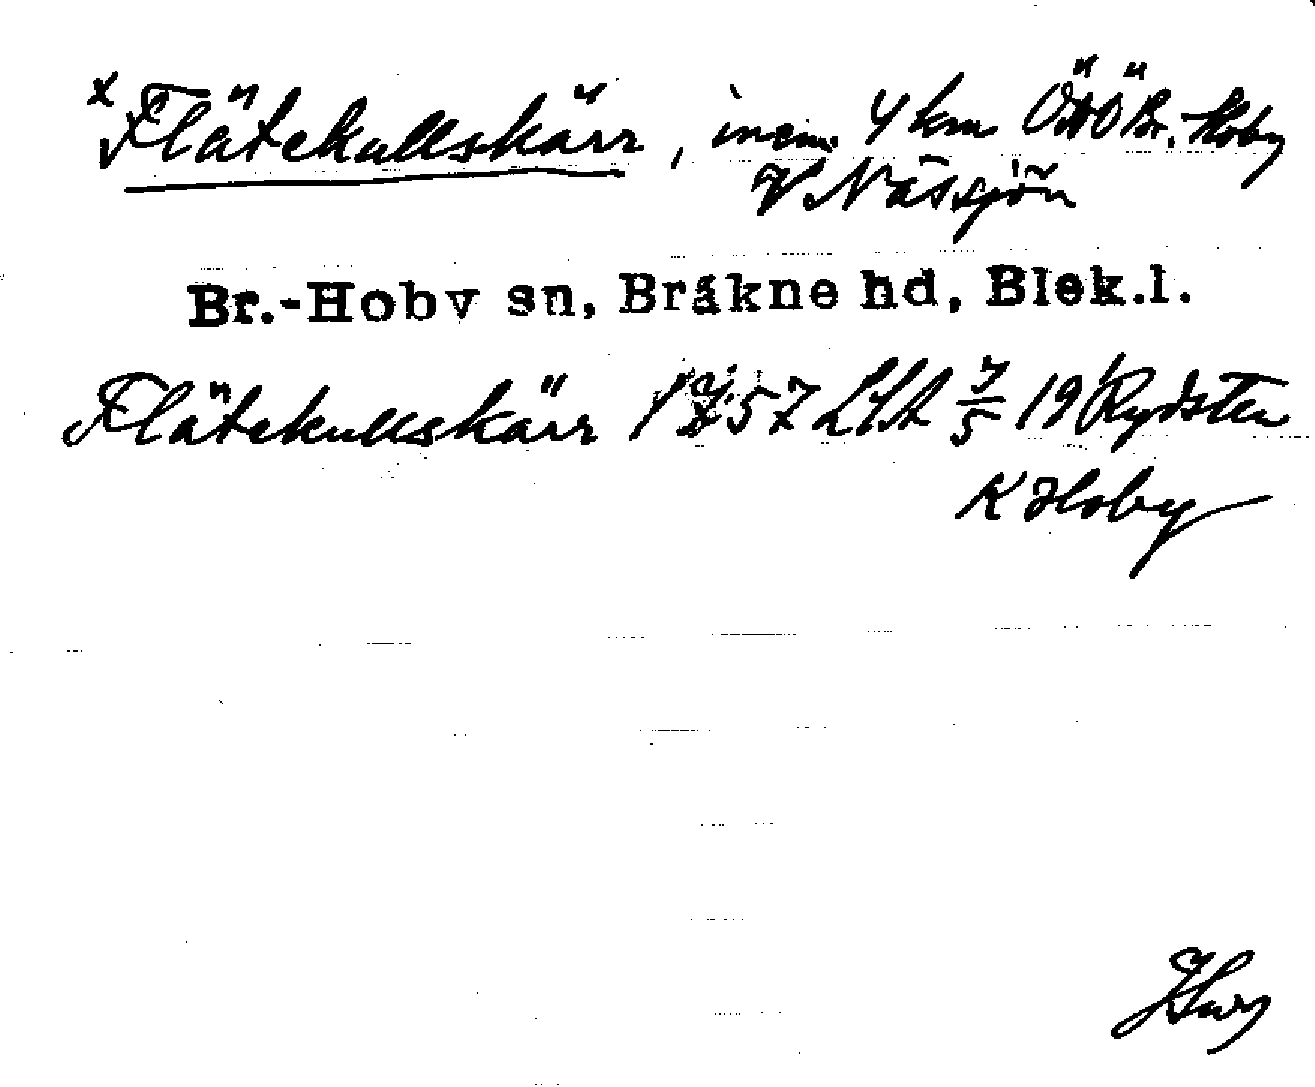 x Flätekullskärr, inom 4 km ÖtÖ Br.-Hoby
V Nässjön
Br.-Hoby sn, Bräkne hd, Blek.l.
Flätekullskärr 1757 LSA 7/5 19 Rydsten
K Hoby